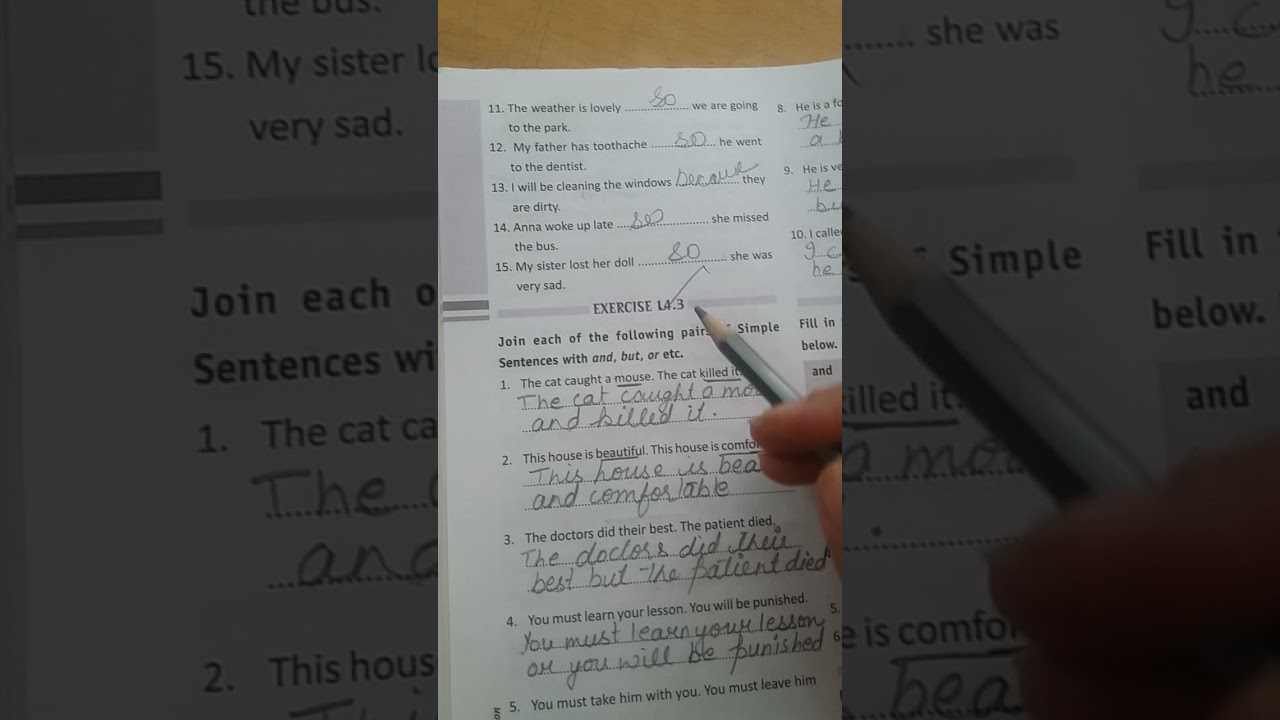 11. The weather is lovely so we are going
to the park.
12. My father has toothache so he went
to the dentist.
13. I will be cleaning the windows because they
are dirty.
14. Anna woke up late so she missed
the bus.
15. My sister lost her doll so she was
very sad.
EXERCISE 14.3
Join each of the following Simple
Sentences with and, but, or etc.
1. The cat caught a mouse. The cat killed it.
The cat caught a
and killed it.
2. This house is beautiful. This house is
This house is
and comfortable
3. The doctors did their best. The patient died.
The doctors did their
best but the patient died
4. You must learn your lesson. You will be punished.
You must learn your lesson
or you will be punished
5. You must take him with you. You must leave him
8. He is a
He
a
9. He is
He
10. I
he
Fill in
below.
and
5.
6
the bus.
15. My sister
very sad.
Join each
Sentences
1. The cat
The
and
2. This
she was
he
Simple
Fill in
below.
killed it.
and
a
is